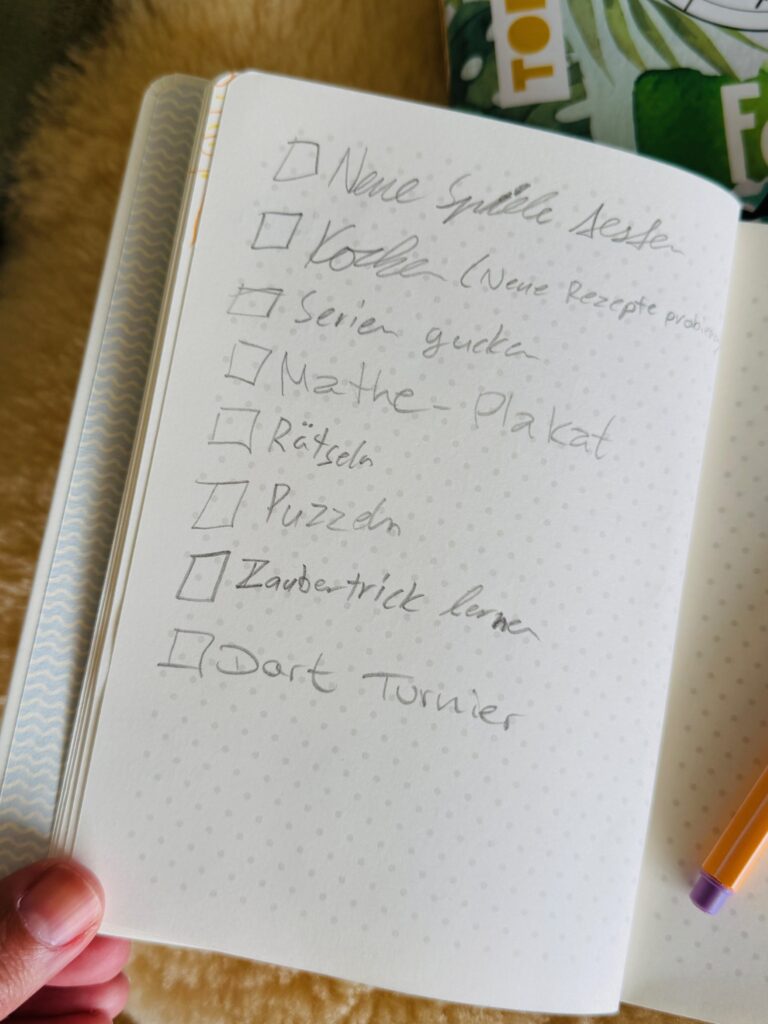 TO
F
Neue Spiele testen
Kochen (Neue Rezepte probieren
Serien gucken
Mathe-Plakat
Rätseln
Puzzeln
Zaubertrick lernen
Dart Turnier